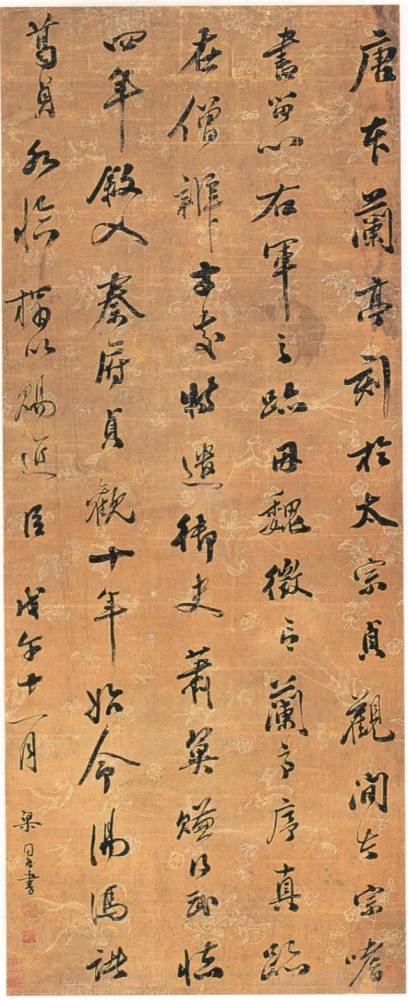 唐本蘭亭刻於太宗貞觀間太宗嗜
書留心右軍之跡因魏徵言蘭亭序真跡
在僧辨才處特遣御史蕭翼賺得武德
四年斂入秦府貞觀十年始命湯馮諸
葛貞各臨搨以賜近臣 戊午十一月 梁書